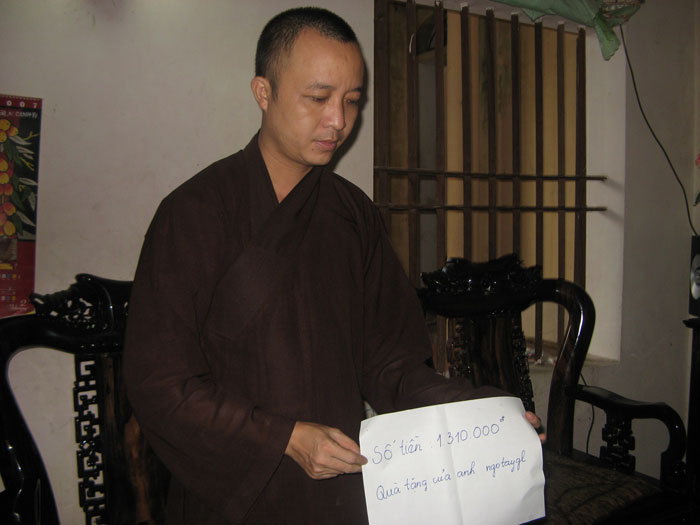 Số tiền : 1310 000đ
Quà tặng của anh ngotaygl